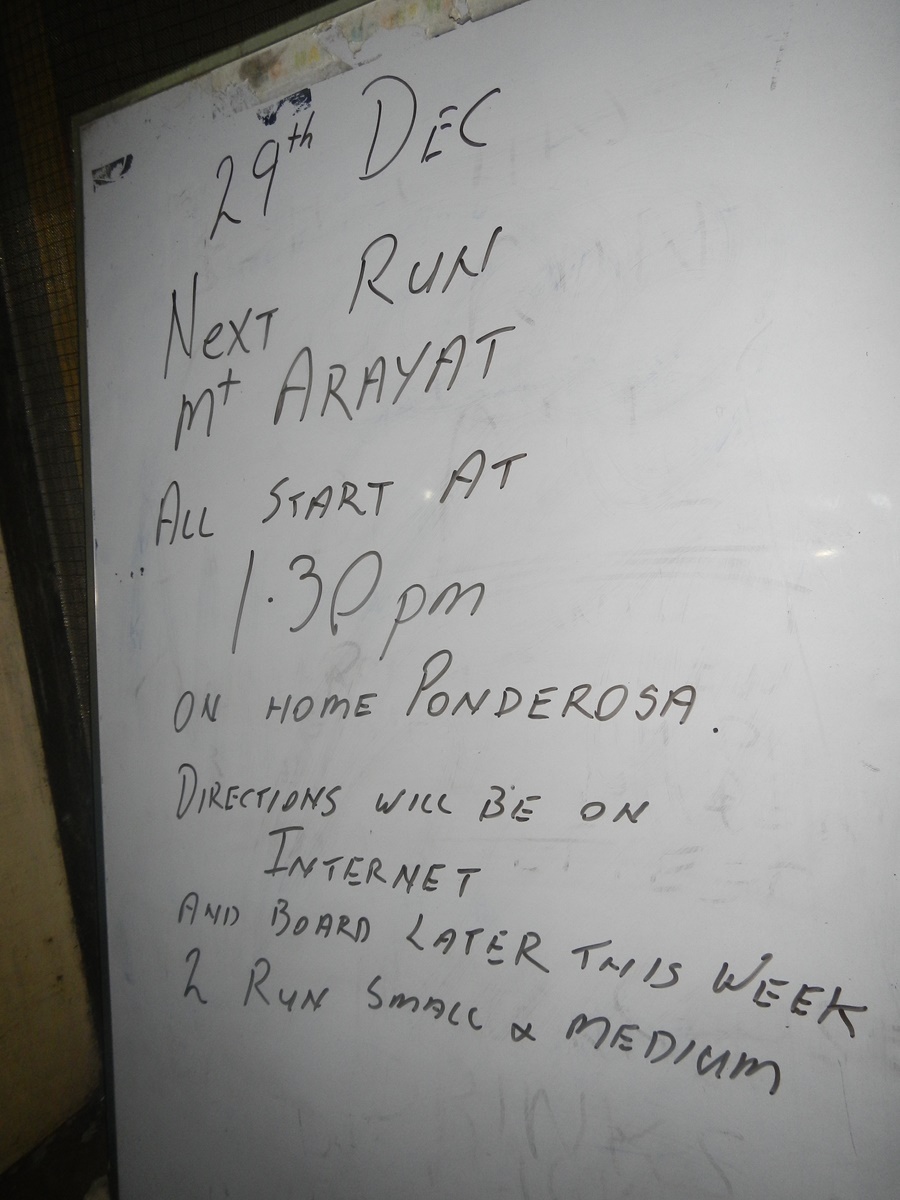 29th DEC
NEXT RUN
Mt ARAYAT
ALL START AT
1.30 pm
ON HOME PONDEROSA.
DIRECTIONS WILL BE ON
INTERNET
AND BOARD LATER THIS WEEK
2 RUN SMALL & MEDIUM